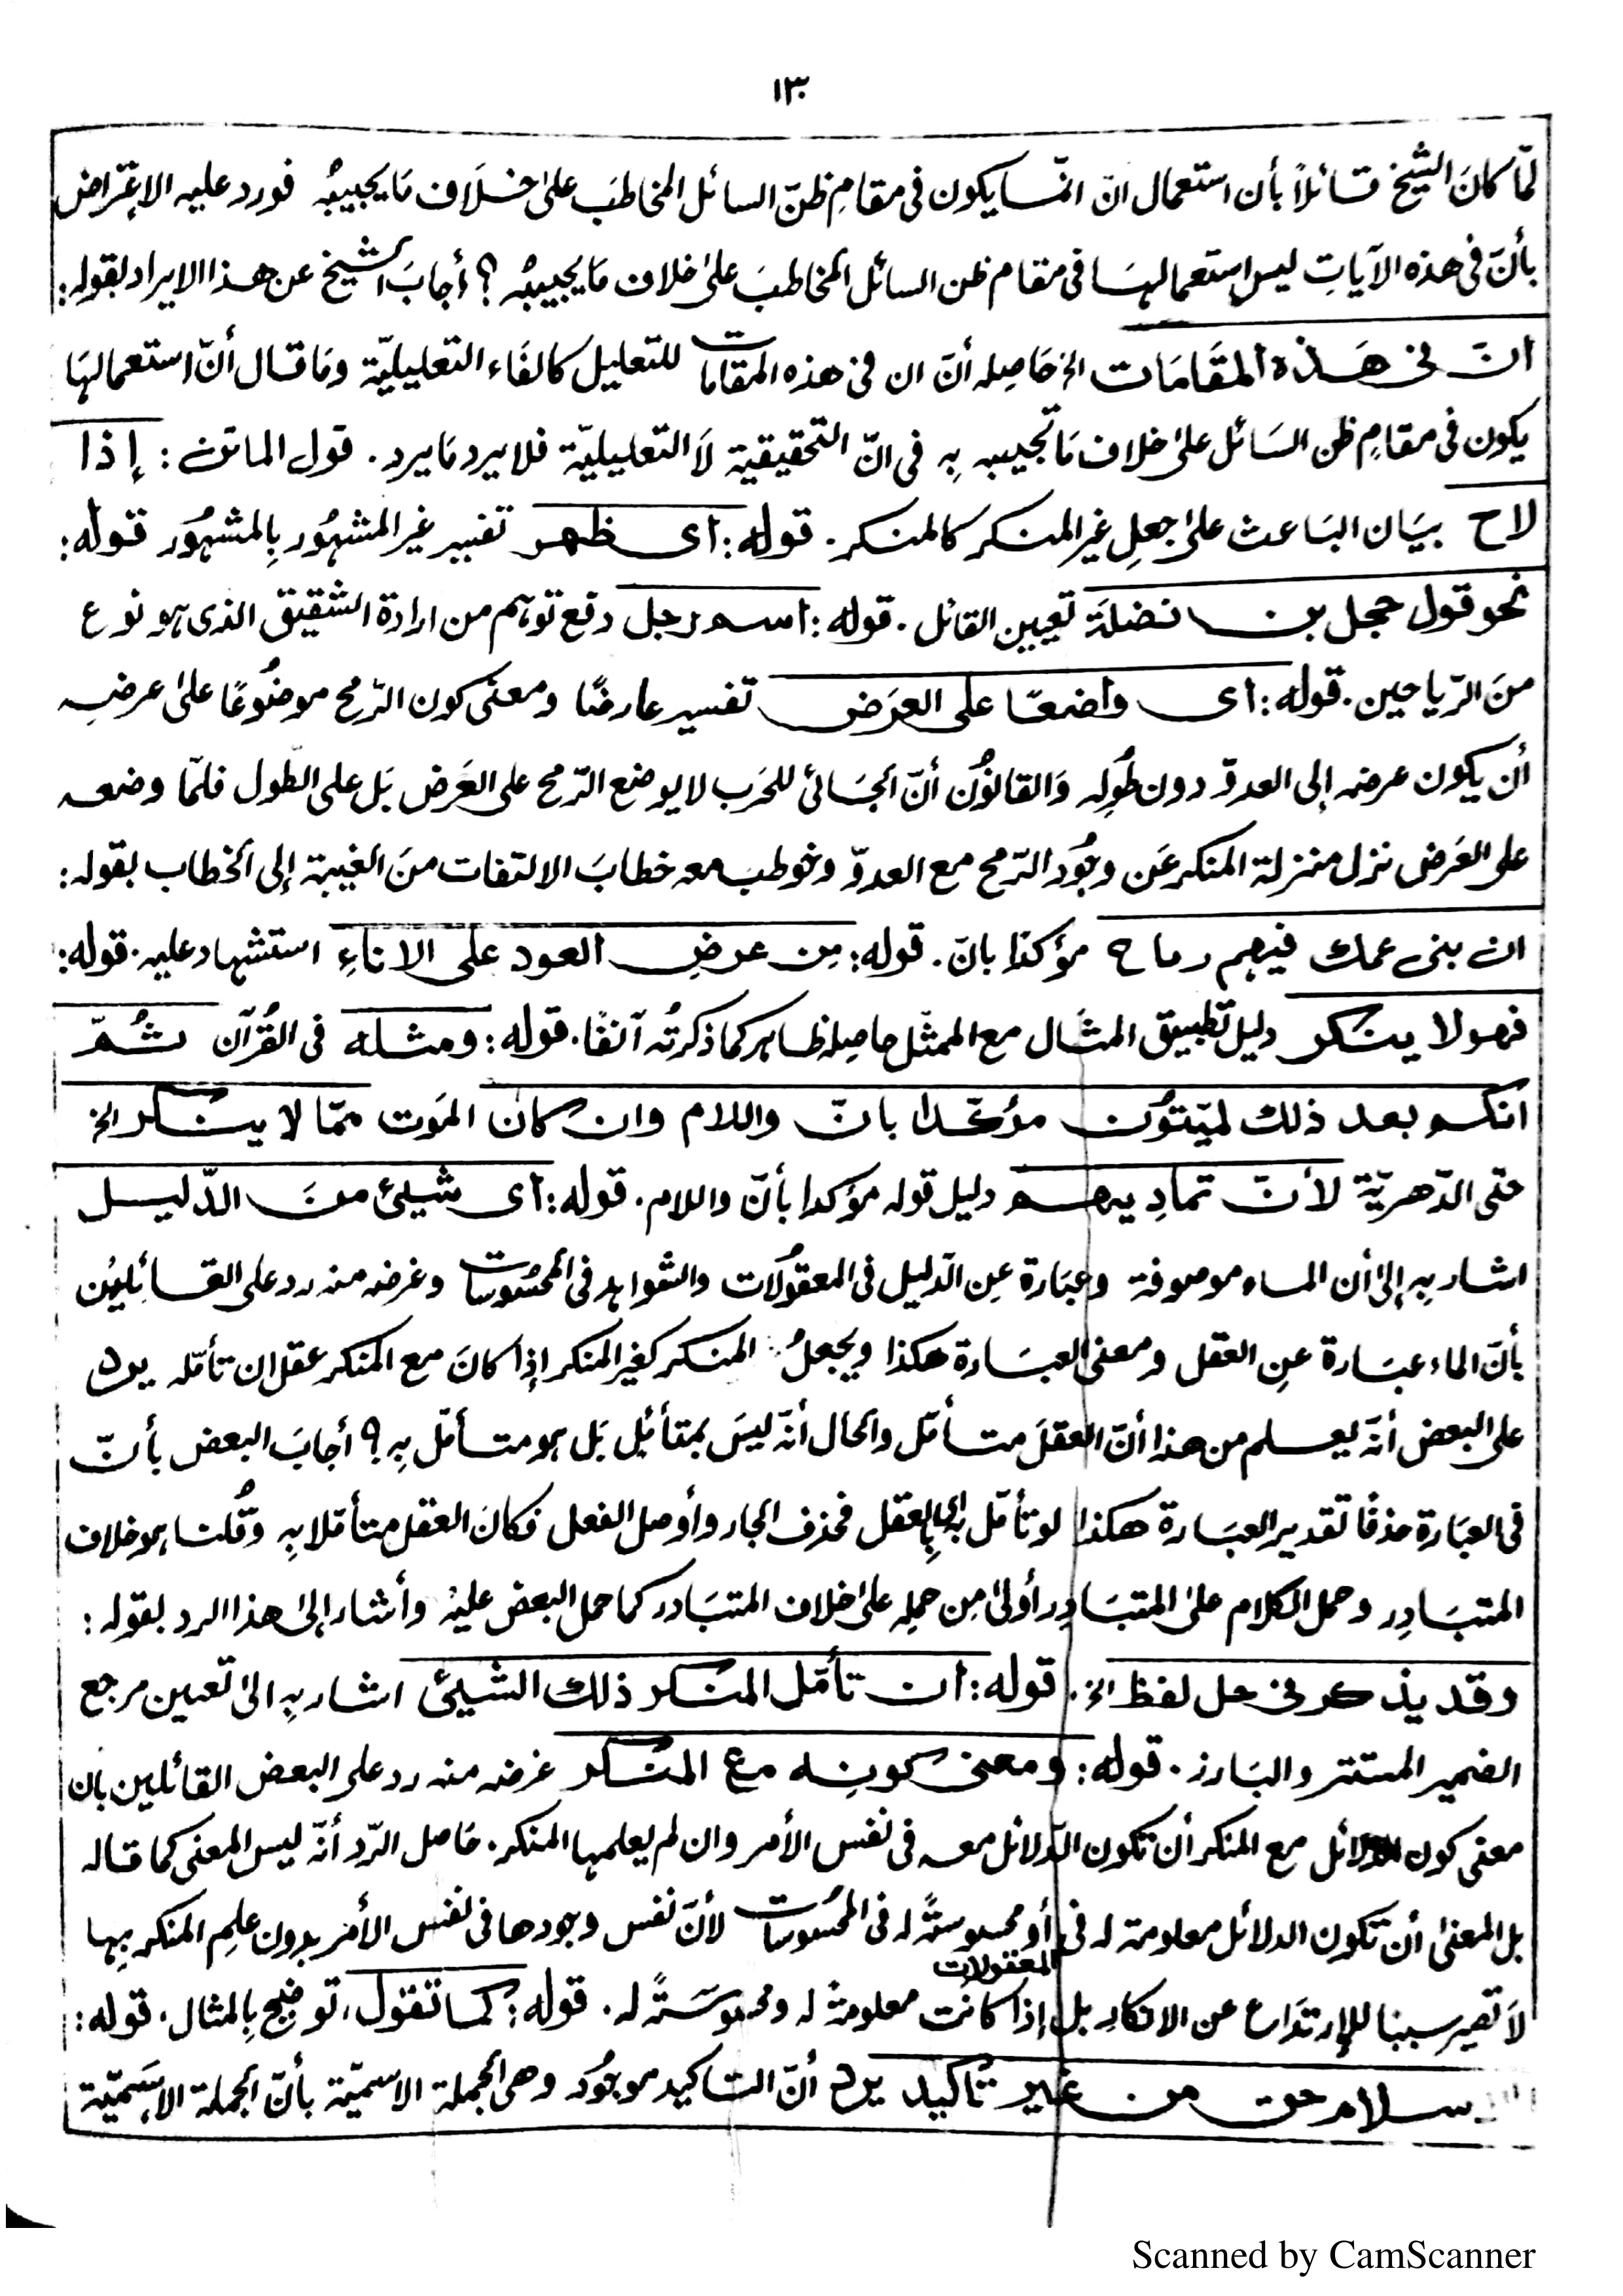 ١٣٠
لمّا كانَ الشيخ قائلاً بأن استعمال انّ انّما يكون فى مقامِ ظنّ السائل المخاطبَ علىٰ خلَاف مَا يجيبهُ فورد عليه الإعتراض
بأنّ فى هذه الآياتِ ليس استعمالهَا فى مقام ظن السائل المخاطبَ علىٰ خلاف مَا يجيبهُ ؟ أجابَ الشيخ عن هذا الايراد بقوله:
انّ فى هَذه المقَامَات الخ حَاصِله أنّ ان فى هذه المقامات للتعليل كالفَاء التعليليّة ومَا قال أنّ استعمالهَا
يكون فى مقامِ ظن السَائل علىٰ خلاف مَا تجيبه بِه فى انّ التحقيقية لَا التعليليّة فلا يرد مَا يرد. قول الماتن: إذا
لاح بيَان البَاعث علىٰ جعلِ غير المنكر كالمنكر. قوله: اى ظهر تفسير غير المشهُور بِالمشهُور قوله:
نحو قول حجل بن نضلة تعيين القائل. قوله: اسم رجل دفع توهم من ارادة الشقيق الذى هو نوع
منَ الرّياحين. قوله: اى واضعًا على العَرَض تفسير عارضًا ومعنى كون الرّمح موضُوعًا علىٰ عرضِه
أن يكون عرضه إلى العدوّ دون طُولِه وَالقانوُن أنّ الجَائى للحَرب لا يوضع الرّمح على العَرض بَل على الطول فلمّا وضعه
على العَرض نزل منزلة المنكر عَن وجُود الرّمح مع العدوّ وخوطب معه خطابَ الالتفات منَ الغيبة إلى الخطاب بقوله:
ان بنى عمك فيهم رماح مؤكدًا بانّ. قوله: مِن عرضِ العود على الاناءِ استشهاد عليه. قوله:
فهو لا ينكر دليل تطبيق المثَال مع الممثّل حاصله ظاهر كما ذكرتُه آنفًا. قوله: ومثله فى القُرآن ثُمّ
انكم بعد ذلك لميّتوُن مؤكّدا بانّ واللام وان كان المَوت ممّا لا ينكر الخ
حتى الدّهريّة لأنّ تمادِيهم دليل قوله مؤكدا بأنّ واللام. قوله: اى شيئ منَ الدّليل
اشار بِه إلىٰ أن الماء موصوفة وعبَارة عِن الدّليل فى المعقوُلات والشواهد فى المحسُوسات وغرضه منه رد على القائِلينُن
بأنّ الماء عبَارة عِن العقل ومعنى العبَارة هكذا ويجعلُ المنكر كغير المنكر إذا كانَ مع المنكر عقل ان تأمّله يرد
على البعض أنّه يعلم من هذا أنّ العقلَ متأمّل والحال أنّه ليسَ بمتأمّلٍ بَل هو متأمّل بِه ؟ أجابَ البعض بأنّ
فى العبَارة حذفًا تقدير العبَارة هكذا لو تأمّل به اى بِالعقل فحذف الجار وأوصل الفعل فكانَ العقل متأمّلا بِه وقُلنا هو خلاف
المتبَادِر وحمل الكلام علىٰ المتبَادِر أولىٰ مِن حملِه علىٰ خلاف المتبَادر كما حمل البعض عليهُ وأشار إلىٰ هذا الرد بقوله:
وقد يذكر فى حل لفظ الخ. قوله: ان تأمّل المنكر ذلك الشيئ اشار بِه الىٰ تعيين مرجع
الضمير المستتر والبَارز. قوله: ومعنى كونِه مع المنكر غرضه منه رد على البعض القائلين بان
معنى كون الدلائل مع المنكر أن تكون الدّلائل معه فى نفس الأمر وان لم يعلمها المنكر. حَاصل الرّد أنّه ليس المعنى كما قاله
بل المعنىٰ أن تكون الدلائل معلومة له فى المعقولات أو محسوسةً له فى المحسُوسات لأنّ نفس وجودها فى نفس الأمر بدون علِم المنكر بها
لَا تصير سببا للإرتدَاع عن الانكارِ بل إذا كانت معلومةً له ومحسوسَةً له. قوله: كما تقول، توضيح بِالمثال. قوله:
الاسلام حق من غير تأكيد يرد أنّ التاكيد موجُود وهى الجملة الاسميّة بأنّ الجملة الإسَميّة
Scanned by CamScanner